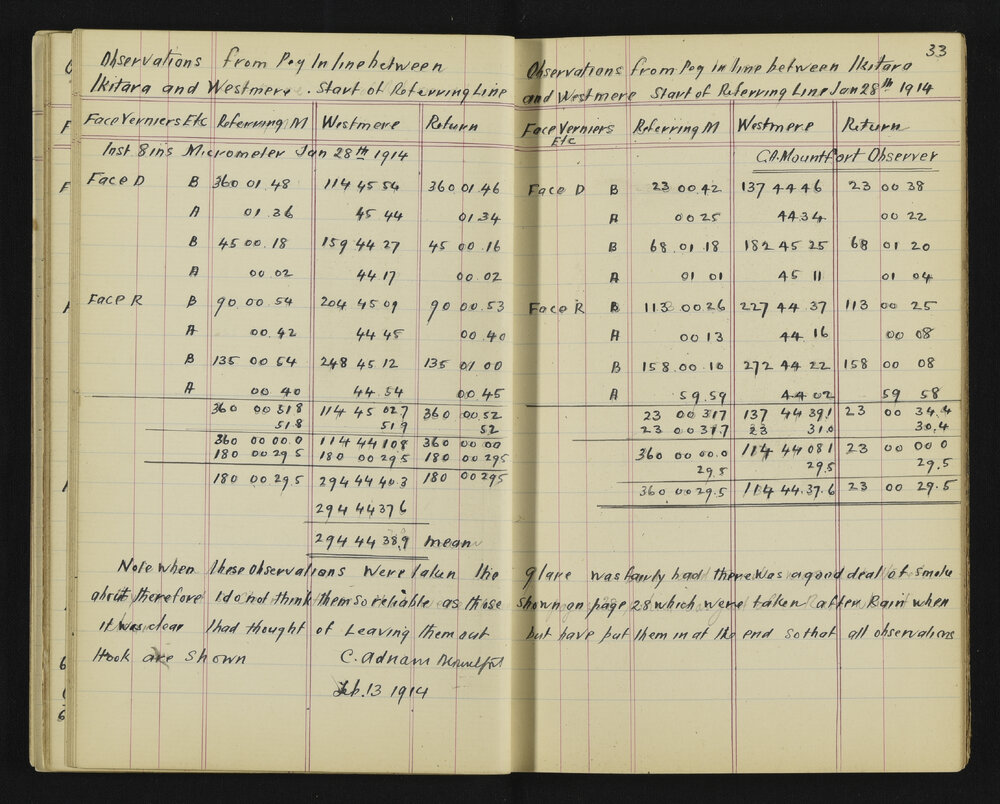 Observations from Peg In line between
Ikitara and Westmere . Start of Referring Line
Face Verniers Etc Referring M Westmere Return
Inst 8 ins Micrometer Jan 28th 1914
Face D B 360 01.48 114 45 54 360.01.46
A 01.36 45.44 01.34
B 45 00.18 159 44 27 45 00.16
A 00.02 44 17 00.02
Face R B 90 00.54 204 45 09 90 00.53
A 00.42 44 45 00.40
B 135 00 54 248 45.12 135 01.00
A 00 40 44.54 00.45
360 00 51.8 114 45 02.7 360 00.52
51.8 51.9 52
360 00 00.0 114 44 10.8 360 00 00
180 00 29.5 180 00 29.5 180 00 29.5
180 00 29.5 294 44 40.3 180 00 29.5
294 44 37.6
294 44 38.9 mean
33
Observations from Peg in line between Ikitara
and Westmere Start of Referring Line Jan 28th 1914
Face Verniers Etc Referring M Westmere Return
C.A. Mountfort Observer
Face D B 23 00.42 137 44 46 23 00 38
A 00 25 44 34 00 22
B 68.01.18 182 45 25 68 01 20
A 01 01 45 11 01 04
Face R B 113 00 26 227 44.37 113 00 25
A 00 13 44.16 00 08
B 158.00.10 272 44 22 158 00 08
A 59.59 44 02 59 58
23 00 31.7 137 44 39.1 23 00 34.4
23 00 31.7 23 31.0 30.4
360 00 00.0 114 44 08.1 23 00 00.0
29.5 29.5 29.5
360 00 29.5 114 44.37.6 23 00 29.5
Note when these observations were taken the glare was fairly bad there was a good deal of smoke
about therefore I do not think them so reliable as those shown on page 28 which were taken after Rain when
it was clear I had thought of Leaving them out but have put them in at the end so that all observations
took are shown C. Adnam Mountfort
Feb. 13 1914